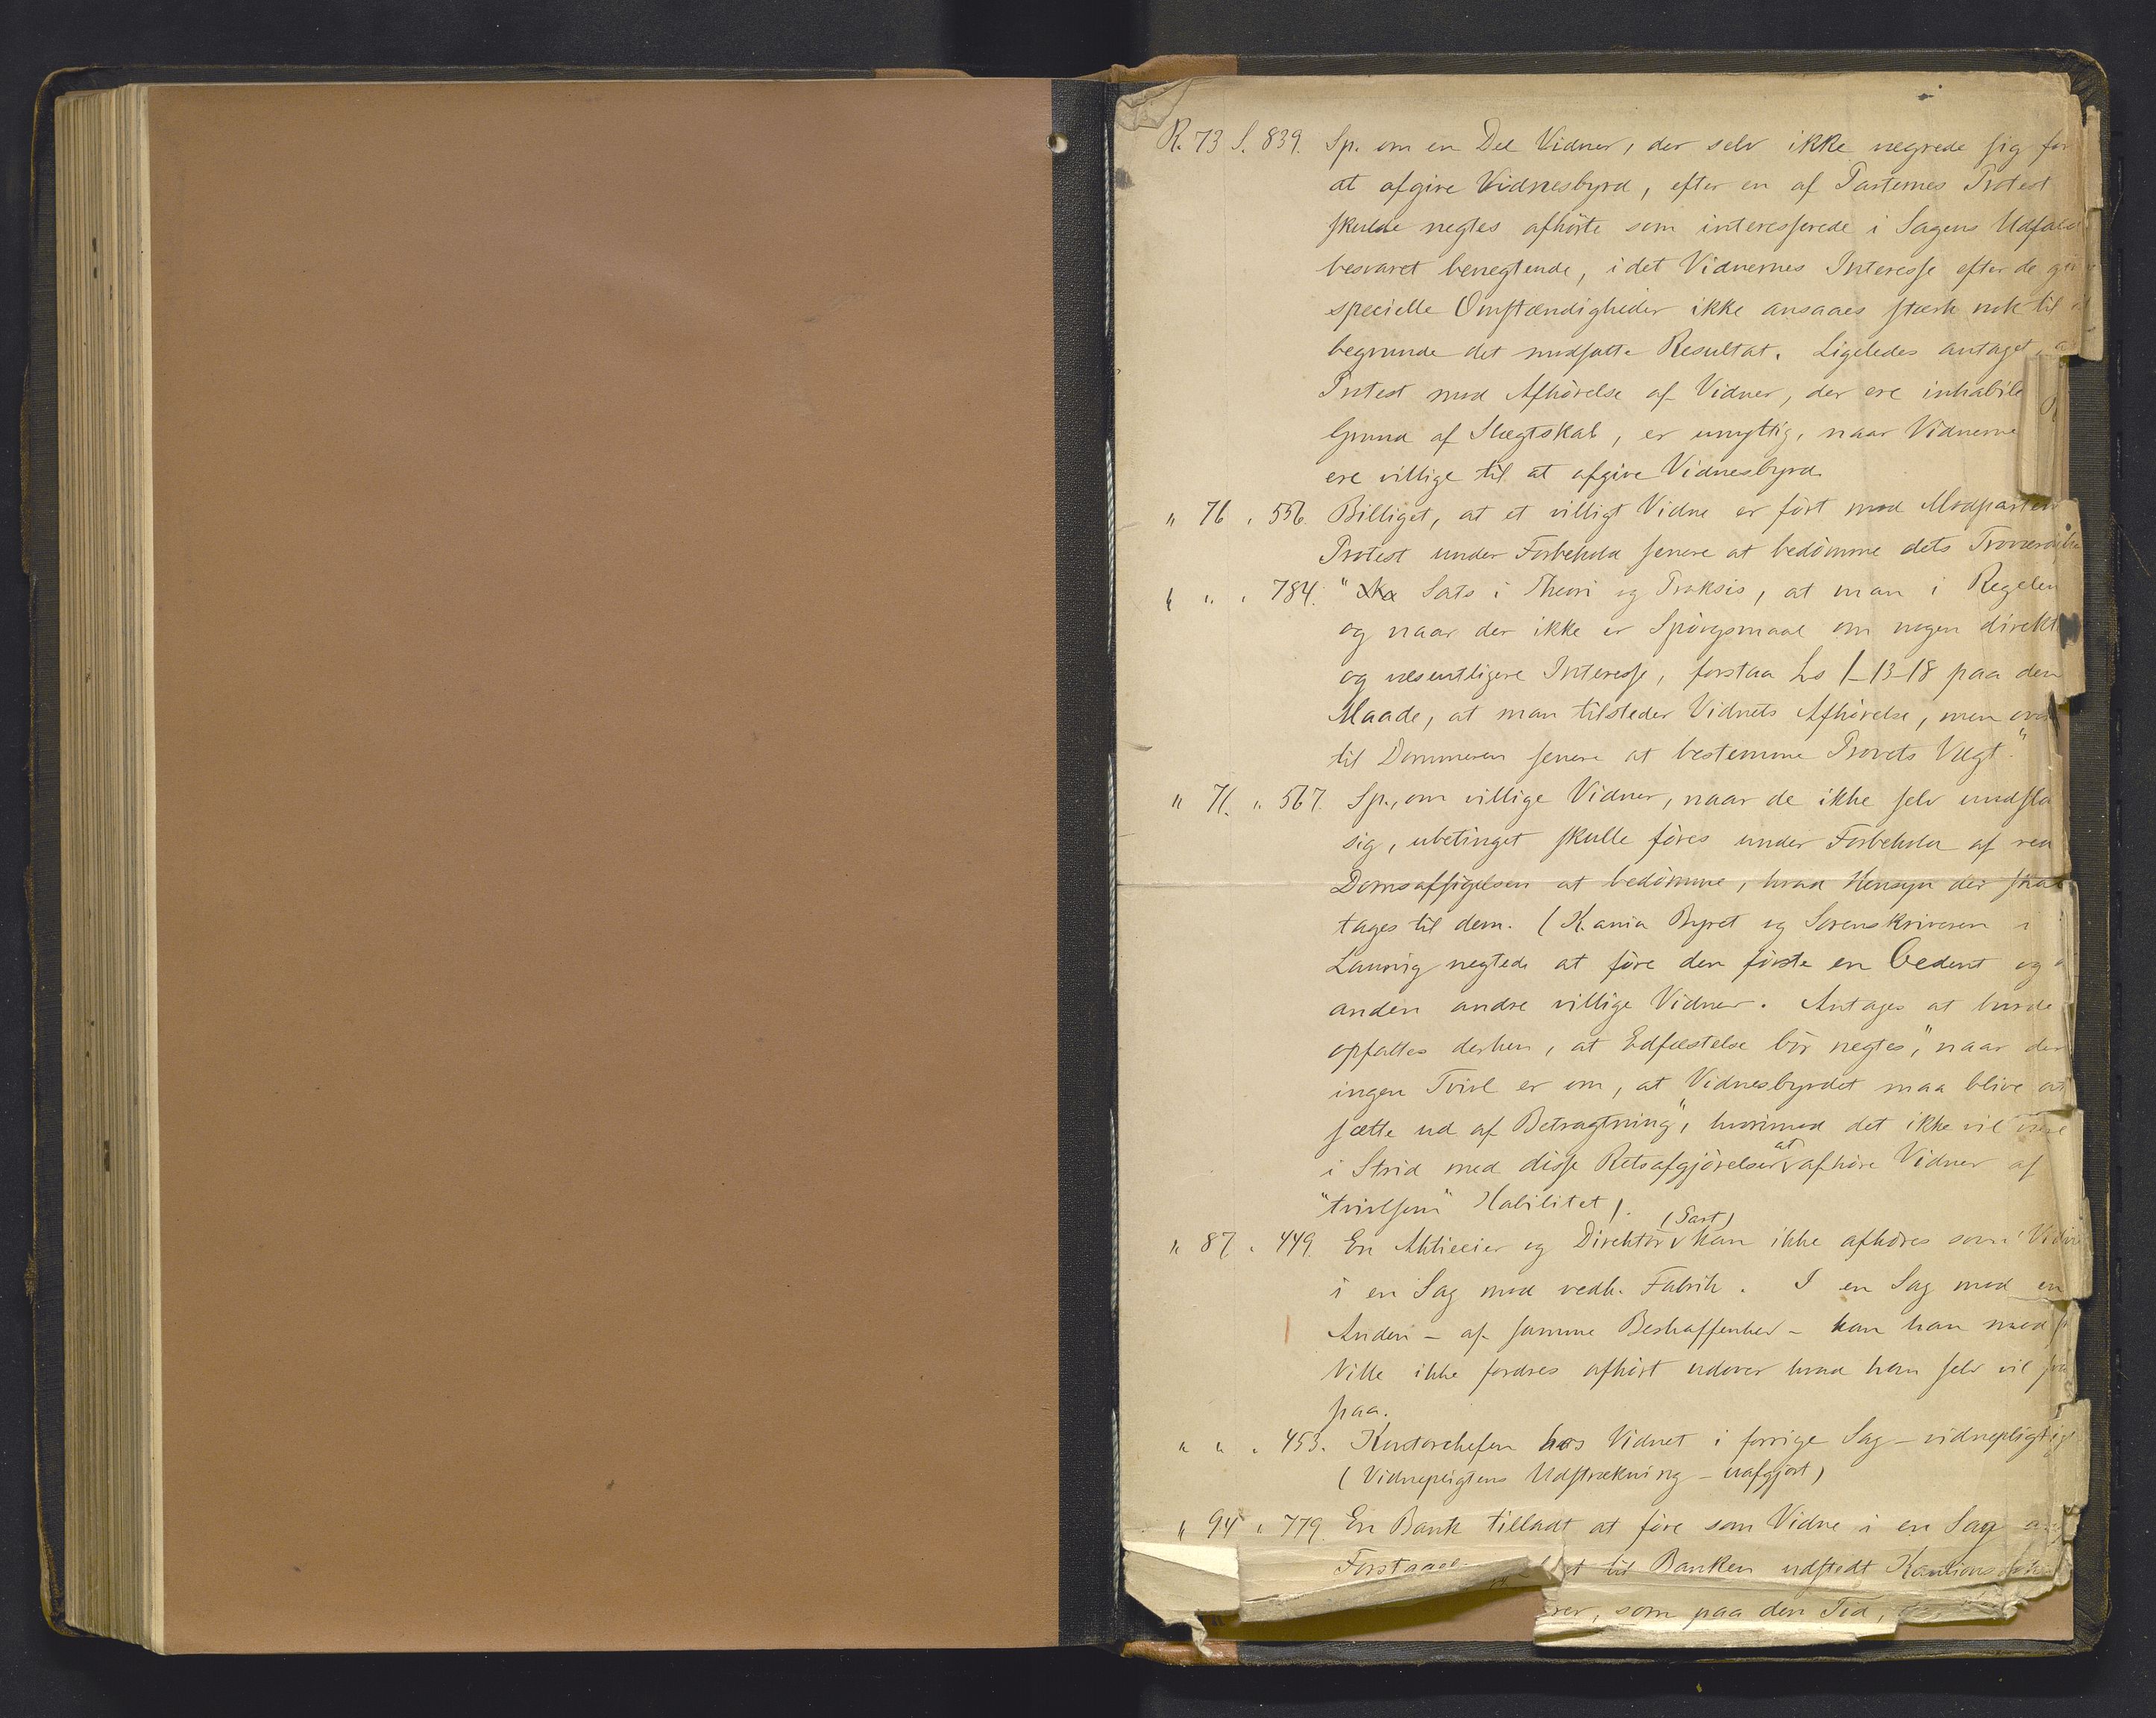 R. 73 S. 839. Sp. om en Del Vidner, der selv ikke vegrede sig for
at afgive Vidnesbyrd, efter en af Parternes Protest
skulde negtes afhørte som interesserede i Sagens Udfald
besvaret benegtende, idet Vidnernes Interesse efter de
specielle Omstændigheder ikke ansaaes stærk nok til
begrunde det modsatte Resultat. Ligeledes antaget,
Protest mod Afhørelse af Vidner, der ere inhabile
Grund af Slægtskab, er unyttig, naar Vidnerne
ere villige til at afgive Vidnesbyrd.
" 76 " 556. Billiget, at et villigt Vidne er ført mod Modpartens
Protest under Forbehold senere at bedømme dets
" " " 784. " Sats i Theori og Praksis, at man i Regelen
og naar der ikke er Spørgsmaal om nogen direkte
og væsentligere Interesse, forstaa L's 1-13-18 paa den
Maade, at man tilsteder Vidnets Afhørelse, men
til Dommeren senere at bestemme Provets Vægt."
" 71. " 567. Sp., om villige Vidner, naar de ikke selv undsla
sig, ubetinget skulle føres under Forbehold af ved
Domsafsigelsen at bedømme, hvad Hensyn der skal
tages til dem. (K.ania Byret og Sorenskriveren i
Laurvig negtede at føre den første en Cedent og
anden andre villige Vidner. Antages at burde
opfattes derhen, at Edfæstelse bør negtes, "naar der
ingen Tvivl er om, at Vidnesbyrdet maa blive at
sætte ud af Betragtning", hvorimod det ikke vil være
i Strid med disse Retsafgjørelser at afhøre Vidner af
"tvivlsom" Habilitet).
" 87 " 449. En Aktieeier og Direktør (Part) kan ikke afhøres som Vidne
i en Sag mod vedk. Fabrik. I en Sag mod en
Anden - af samme Beskaffenhed - kan han mod
Ville ikke fordres afhørt udover hvad han selv vil
paa.
" " " 453. Kontorchefen hos Vidnet i forrige Sag - vidnepligtig
(Vidnepligtens Udstrækning - uafgjort)
" 94 " 779. En Bank tilladt at føre som Vidne i en Sag
til Banken udstedt
som paa den Tid,